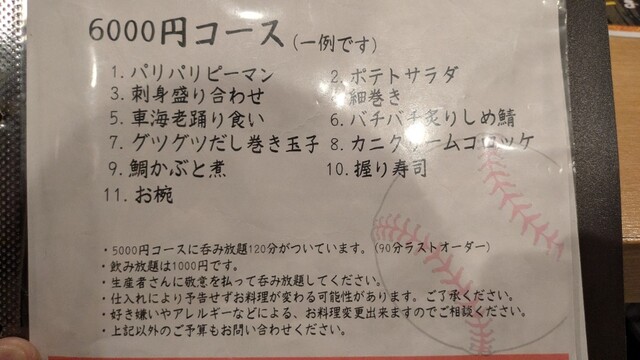 6000円コース(一例です)
1. パリパリピーマン 2. ポテトサラダ
3. 刺身盛り合わせ 細巻き
5. 車海老踊り食い 6. バチバチ炙りしめ鯖
7. グツグツだし巻き玉子 8. カニクリームコロッケ
9. 鯛かぶと煮 10. 握り寿司
11. お椀
・5000円コースに呑み放題120分がついています。(90分ラストオーダー)
・飲み放題は1000円です。
・生産者さんに敬意を払って呑み放題してください。
・仕入れにより予告せずお料理が変わる可能性があります。ご了承ください。
・好き嫌いやアレルギーなどによる、お料理変更出来ますのでご相談ください。
・上記以外のご予算もお問い合わせください。